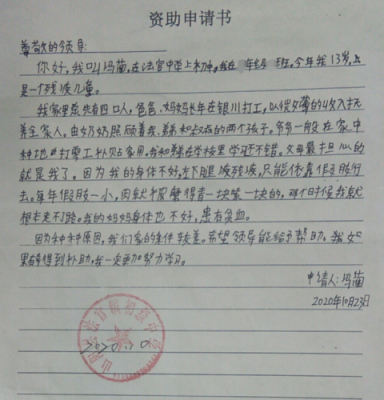 资助申请书
尊敬的领导：
你好，我叫冯茵，在法官中学上初中，我在 年级 班。今年我13岁，
是一个残疾儿童。
我家里总共有四口人，爸爸、妈妈长年在银川打工，以微薄的收入抚
养全家人，由奶奶照顾着我、弟和的两个孩子。爷爷一般在家中
种地 打零工补贴家用。我和弟在学校里学还不错。父母最担心的
就是我了。因为我的身体不好，左下腿残疾，只能依靠假肢行
去。每年假肢一小，肉就一块紫一块的，那个时候我就
根走不了路。我的妈妈身体也不好，患有贫血。
因为种种原因，我们家的条件较差。希望领导能给予帮助。我如
果得到补助，我一定更加努力学习。
申请人：冯茵
2020年10月23日
山阳县法官镇初级中学